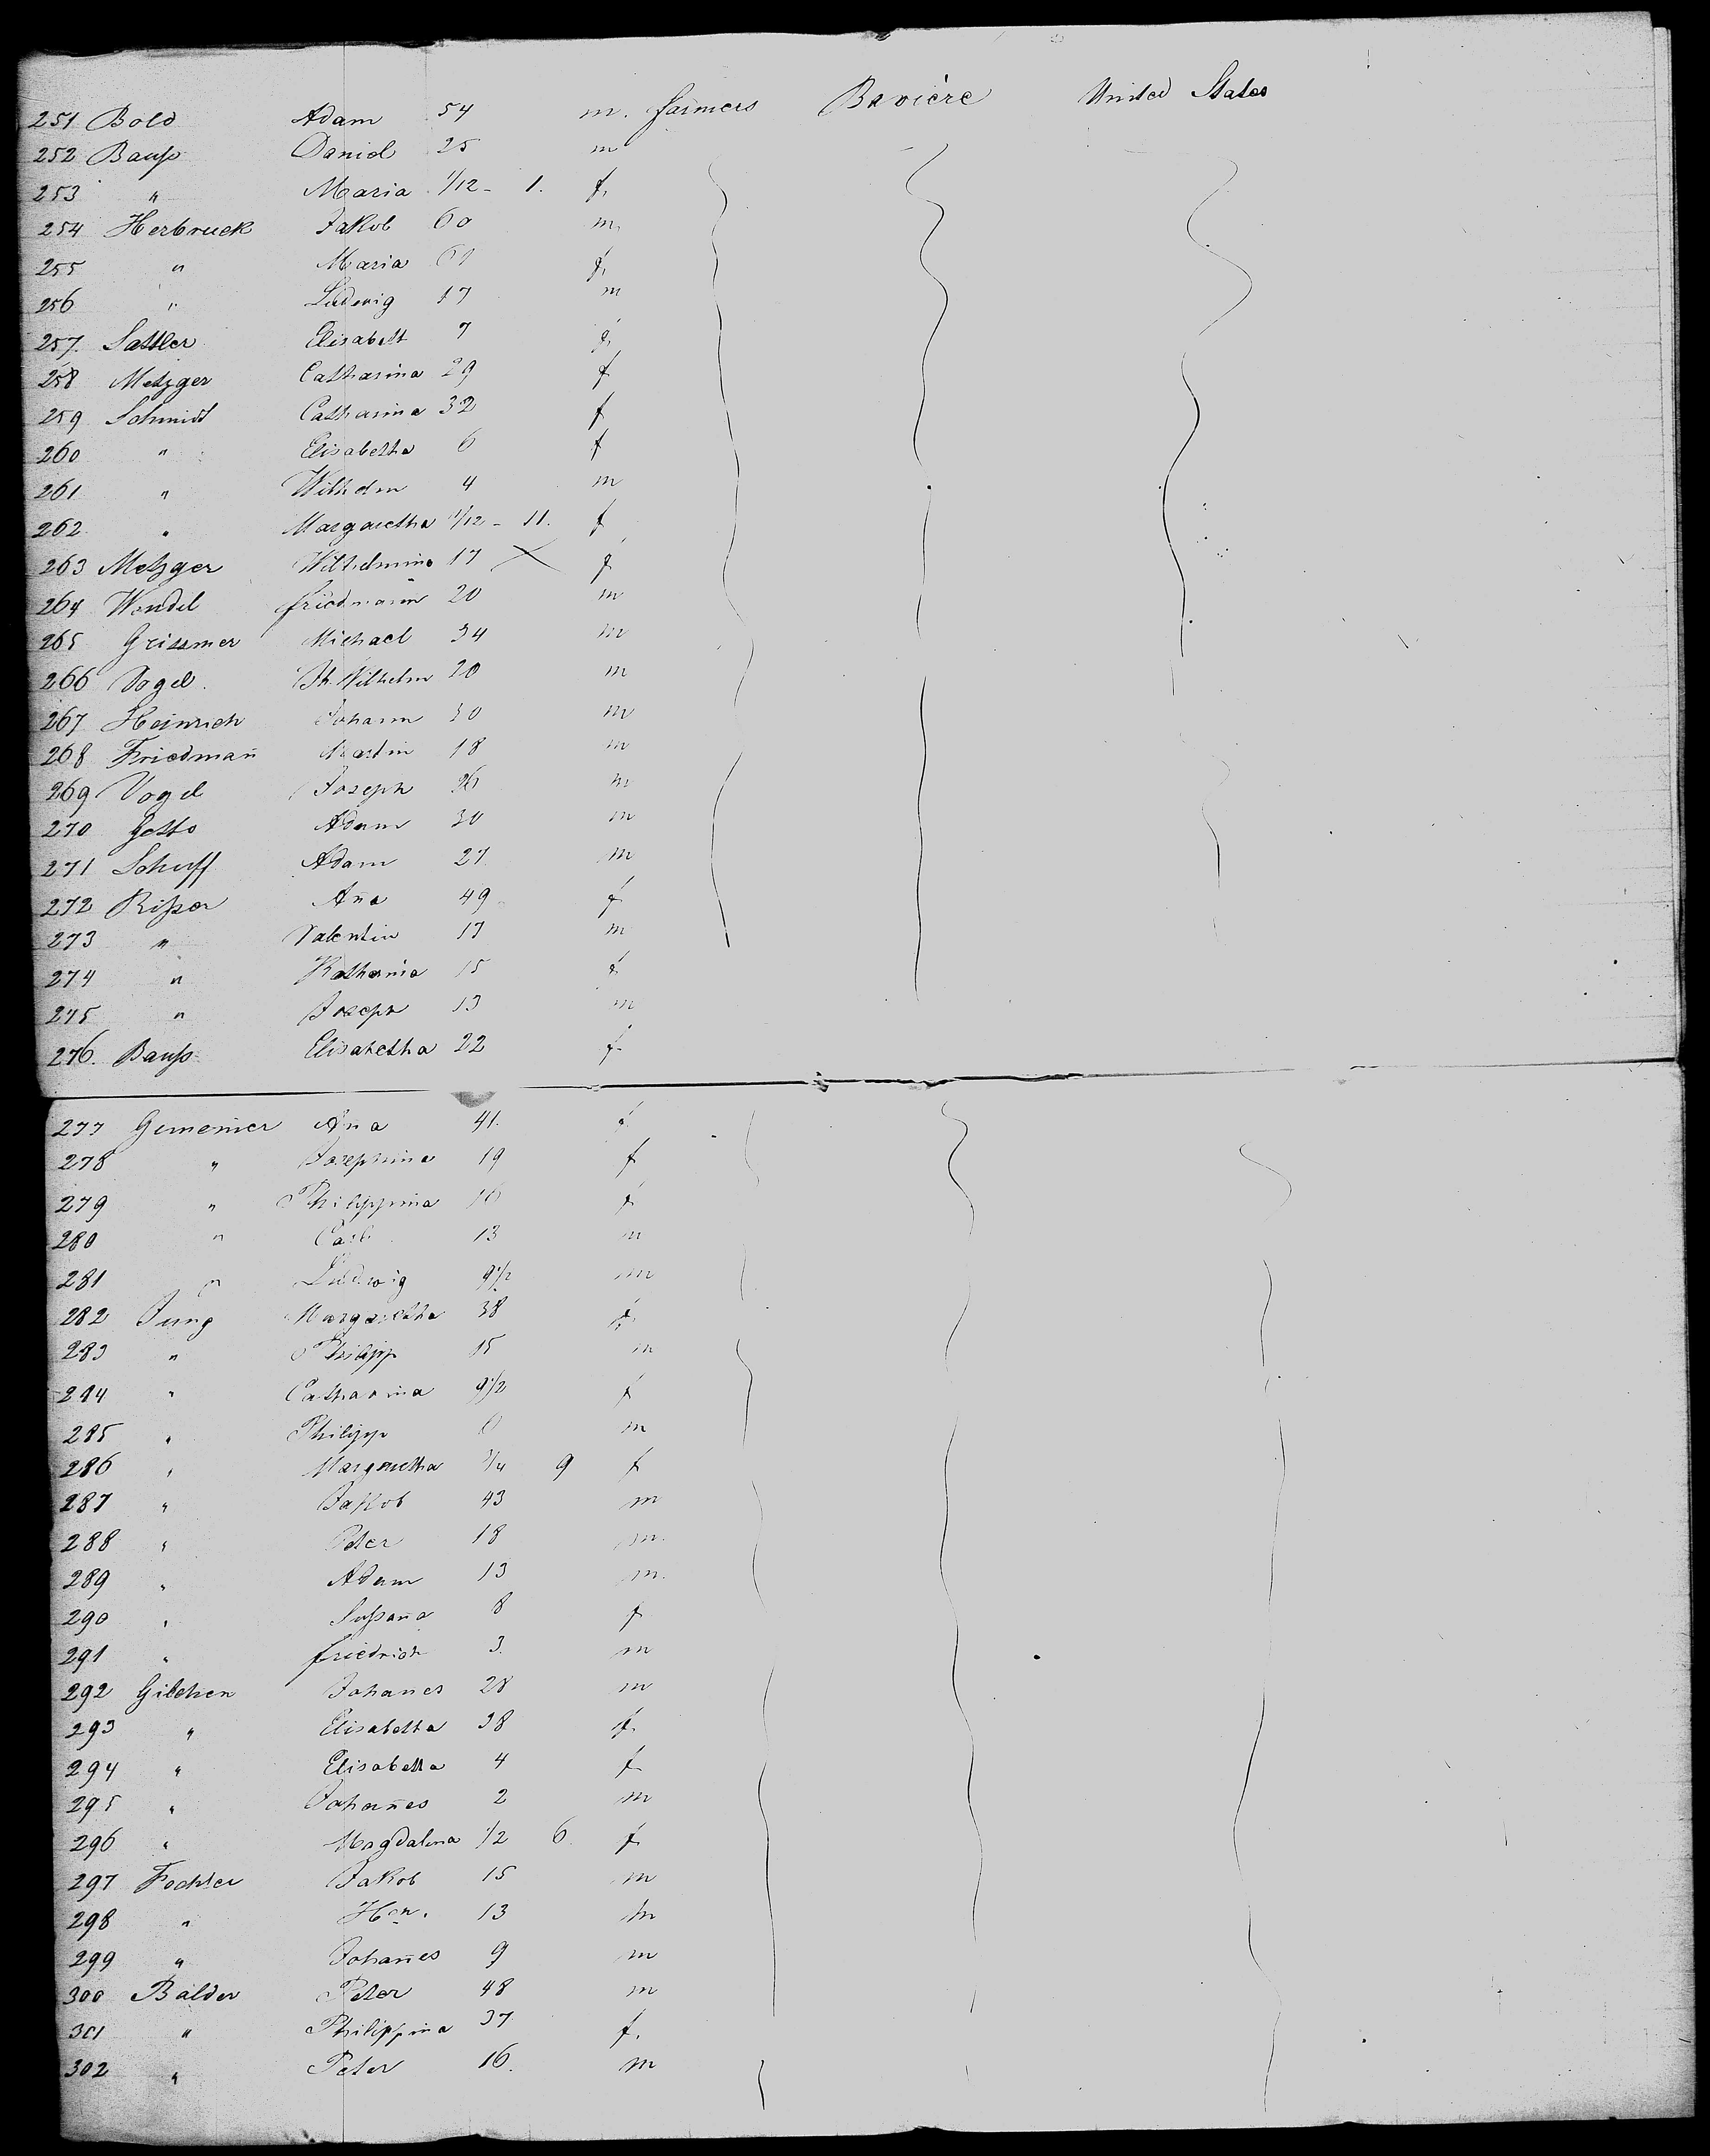 251 Bold Adam 54 m. farmers Bavière United States
252 Bauß Daniel 25 m
253 " Maria 1/12 - 1. f.
254 Herbruck Jakob 60 m.
255 " Maria f.
256 " Ludwig 17 m
257. Sattler Elisabett 7 f.
258 Metzger Catharina 29 f
259 Schmidt Catharina 32 f
260 " Elisabetha 6 f
261 " Wilhelm 4 m
262 " Margaretha 11/12 - 11. f
263 Metzger Wilhelmina 17 X f
264 Wendel friedmann 20 m
265 Grissmer Michael 34 m
266 Vogel. Wilhelm 20 m
267 Heinrich Johann 30 m
268 Friedman̄ Martin 18 m
269 Vogel Joseph 26 m
270 Gotto Adam 30 m
271 Schuff Adam 27 m
272 Rißer An̄a 49 f
273 " Valentin 17 m
274 " Katharina 15 f
275 " Joseph 13 m
276. Bauß Elisabetha 22 f
277 Gimenier An̄a 41. f
278 " Josephina 19 f
279 " Philippina 16 f
280 " Carl 13 m
281 " Ludwig 9 1/2 m
282 Jung Margaretha 38 f.
283 " Philipp 15 m
284 " Catharina 9 1/2 f
285 " Philipp m
286 " Margaretha 3/4 9 f
287 " Jakob 43 m
288 " Peter 18 m.
289 " Adam 13 m.
290 " Sußan̄a 8 f
291 " friedrich 3. m
292 Gilchen Johanes 28 m
293 " Elisabetha 38 f.
294 " Elisabetta 4 f
295 " Johan̄es 2 m
296 " Magdalena 1/2 6 f
297 Fochter Jakob 15 m
298 " Hen. 13 m
299 " Johan̄es 9 m
300 Balder Peter 48 m
301 " Philippina 37 f.
302 " Peter 16. m